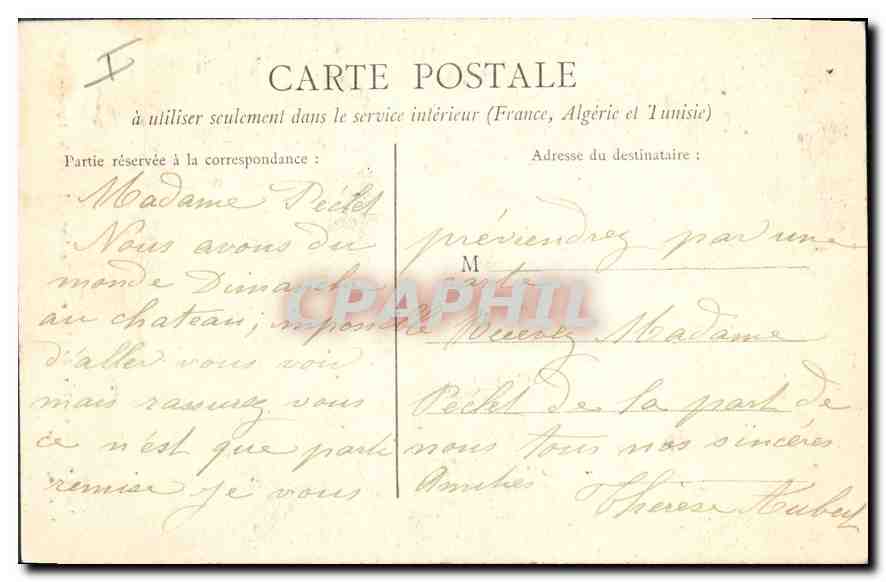 I
CARTE POSTALE
à utiliser seulement dans le service intérieur (France, Algérie et Tunisie)
Partie réservée à la correspondance :
Madame Péclet
Nous avons du
monde Dimanche
au chateau, impossible
d'aller vous voir
mais rassurez vous
ce n'est que partie
remise je vous
Adresse du destinataire :
préviendrez par une
M
carte
Recevez Madame
Péclet de la part de
nous tous nos sincéres
Amitiés
Thérèse Aubert
CPAPHIL